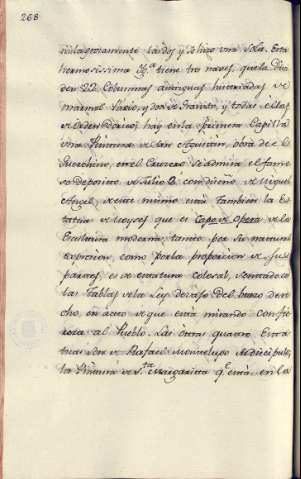 268
milagrosamente las dos y se hizo una sola. Esta
hermosissima Yg.ª tiene tres naves, que la divi
den 22 Columnas antiguas historiadas de
marmol Pario, y dos de Granito, y todas ellas
de orden Dorico; hay en la primera Capilla
una Pintura de San Agustin, obra de el
Guerchino, en el Crucero se admira el famo
so deposito de Julio 2. con diseño de Miguel
Angel, de este mismo está tambien la Es
tatua de Moyses que es Capo de Opera de la
Escultura moderna, tanto por su natural
exprecion, como por la proporcion de sus
partes, es de estatura colosal, sentado co
las Tablas de la Ley devajo del brazo dere
cho, en acto de que está mirando con fie
reza al Pueblo. Las otras quatro Esta
tuas son de Rafael Montelupo su discipulo,
la Pintura de S.ta Margarita q.e está en la